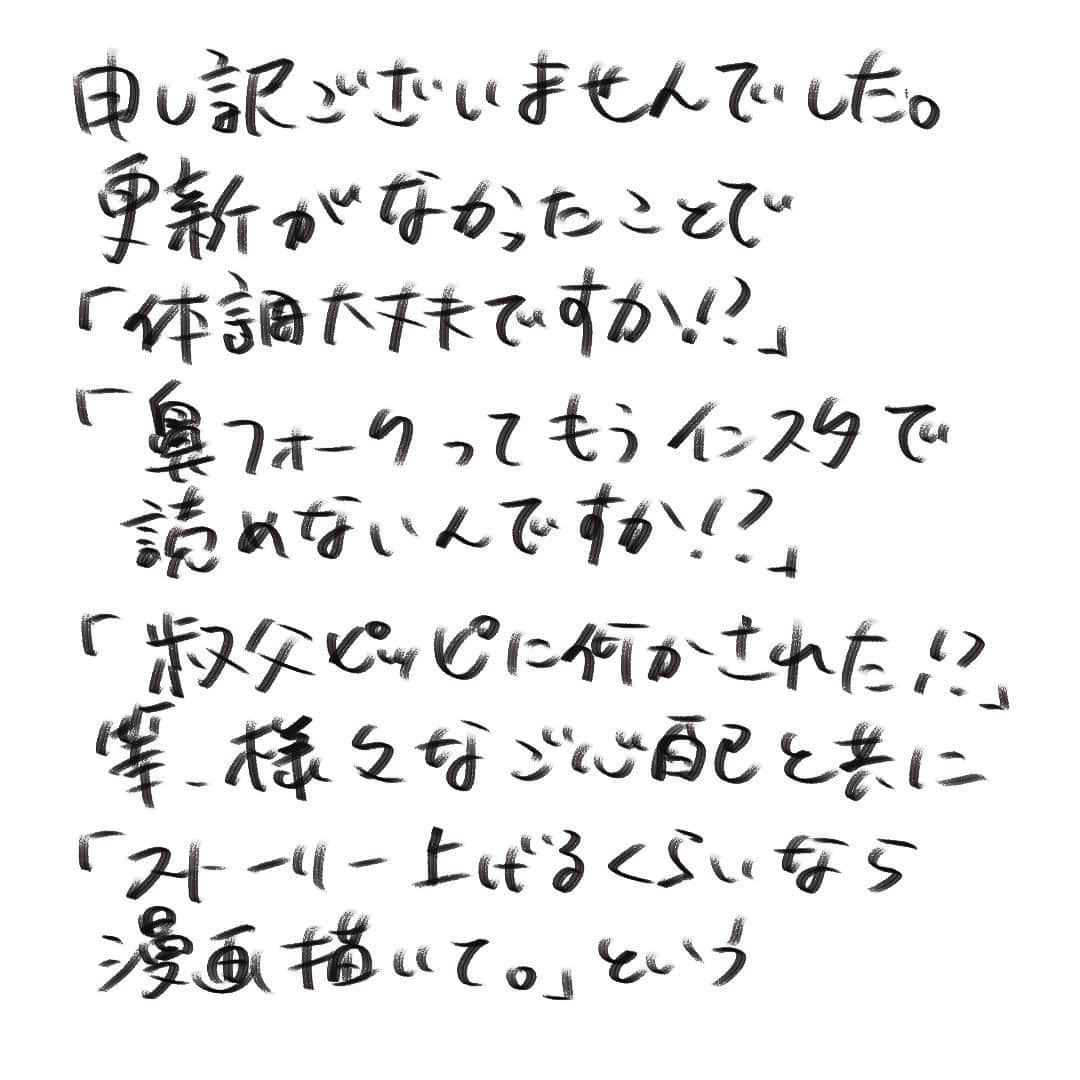 申し訳ございませんでした。
更新がなかったことで
「体調大丈夫ですか!?」
「鼻フォークってもうインスタで
読めないんですか!?」
「叔父ピッピに何かされた!?」
等、様々なご心配と共に
「ストーリー上げるくらいなら
漫画描いて。」という